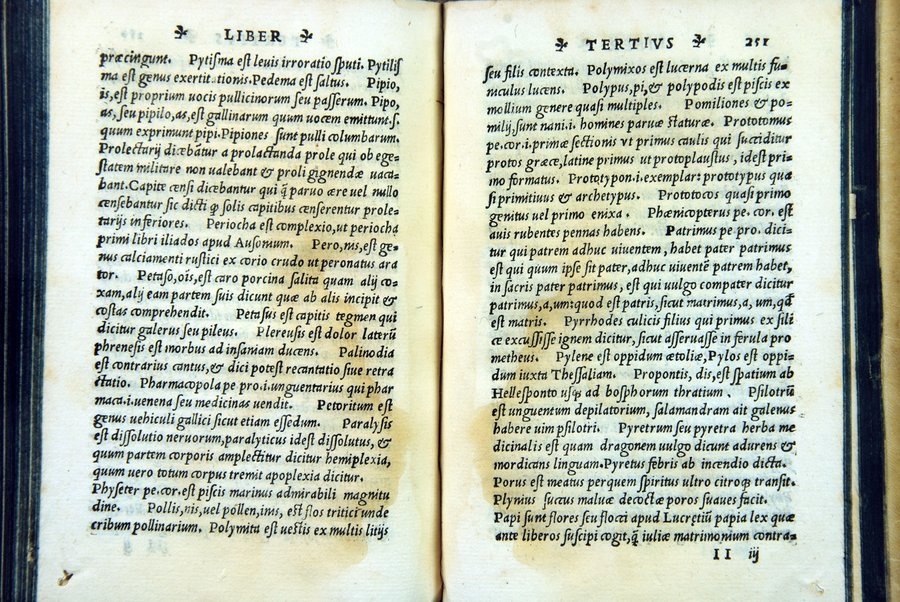 LIBER
præcingunt. Pytisma est leuis irroratio sputi. Pytilis
ma est genus exertitationis. Pedema est saltus. Pipio,
is, est proprium uocis pullicinorum seu passerum. Pipo,
as, seu pipilo, as, est gallinarum quum uocem emittunt. s.
quum exprimunt pipi. Pipiones sunt pulli columbarum.
Prolectarij dicebatur a prolactanda prole qui ob ege-
statem militare non ualebant & proli gignendæ uaca-
bant. Capite censi dicebantur qui q̃ paruo ære uel nullo
censebantur sic dicti q̃ solis capitibus censerentur prole-
tarijs inferiores. Periocha est complexio, ut periocha
primi libri iliados apud Ausonium. Pero, nis, est ge-
nus calciamenti rustici ex corio crudo ut peronatus ara
tor. Petaso, ōis, est caro porcina salita quam alij co-
xam, alij eam partem suis dicunt quæ ab alis incipit &
costas comprehendit. Petasus est capitis tegmen qui
dicitur galerus seu pileus. Plereusis est dolor laterũ
phrenesis est morbus ad insaniam ducens. Palinodia
est contrarius cantus, & dici potest recantatio siue retra
ctatio. Pharmacopola pe pro. i. unguentarius qui phar
maca. i. uenena seu medicinas uendit. Petoritum est
genus uehiculi gallici sicut etiam essedum. Paralysis
est dissolutio neruorum, paralyticus idest dissolutus, &
quum partem corporis amplectitur dicitur hemiplexia,
quum uero totum corpus tremit apoplexia dicitur.
Physeter pe. cor. est piscis marinus admirabili magnitu
dine. Pollis, nis, uel pollen, inis, est flos tritici unde
cribum pollinarium. Polymita est uestis ex multis litijs
TERTIVS 251
seu filis contexta. Polymixos est lucerna ex multis fu-
niculus lucens. Polypus, pi, & polypodis est piscis ex
mollium genere quasi multiples. Pomiliones & po-
milij, sunt nani. i. homines paruæ staturæ. Prototomus
pe. cor. i. primæ sectionis vt primus caulis qui succiditur
protos græce, latine primus ut protoplaustus, idest pri-
mo formatus. Prototypon. i. exemplar: prototypus qua
si primitiuus & archetypus. Prototocos quasi primo
genitus uel primo enixa. Phænicopterus pe. cor. est
auis rubentes pennas habens. Patrimus pe. pro. dici-
tur qui patrem adhuc uiuentem, habet pater patrimus
est qui quum ipse sit pater, adhuc uiuentẽ patrem habet,
in sacris pater patrimus, est qui uulgo compater dicitur
patrimus, a, um: quod est patris, sicut matrimus, a, um, qđ
est matris. Pyrrhodes culicis filius qui primus ex sili
ce excussisse ignem dicitur, sicut asseruasse in ferula pro
metheus. Pylene est oppidum ætoliæ, Pylos est oppi-
dum iuxta Thessaliam. Propontis, dis, est spatium ab
Hellesponto usq; ad bosphorum thratium. Psilotrũ
est unguentum depilatorium, salamandram ait galenus
habere uim psilotri. Pyretrum seu pyretra herba me
dicinalis est quam dragonem uulgo dicunt adurens &
mordicans linguam. Pyretus febris ab incendio dicta.
Porus est meatus perquem spiritus ultro citroq; transit.
Plynius succus maluæ decoctæ poros suaues facit.
Papi sunt flores seu flocci apud Lucretiũ papia lex quæ
ante liberos suscipi cogit, q̃ iuliæ matrimonium contra-
II iij